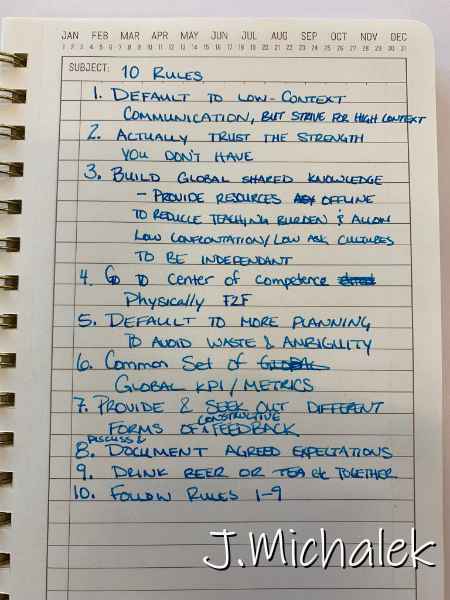 JAN FEB MAR APR MAY JUN JUL AUG SEP OCT NOV DEC
1 2 3 4 5 6 7 8 9 10 11 12 13 14 15 16 17 18 19 20 21 22 23 24 25 26 27 28 29 30 31
SUBJECT: 10 RULES
1. DEFAULT TO LOW-CONTEXT
COMMUNICATION, BUT STRIVE FOR HIGH CONTEXT
2. ACTUALLY TRUST THE STRENGTH
YOU DON'T HAVE
3. BUILD GLOBAL SHARED KNOWLEDGE
- PROVIDE RESOURCES OFFLINE
TO REDUCE TEACHING BURDEN & ALLOW
LOW CONFRONTATION/LOW ASK CULTURES
TO BE INDEPENDANT
4. Go TO Center of Competence
Physically F2F
5. DEFAULT TO MORE PLANNING
TO AVOID WASTE & AMBIGUITY
6. Common Set of GLOBAL
GLOBAL KPI/METRICS
7. PROVIDE & SEEK OUT DIFFERENT
FORMS OF CONSTRUCTIVE FEEDBACK
8. DISCUSS & DOCUMENT AGREED EXPECTATIONS
9. DRINK BEER OR TEA etc TOGETHER
10. FOLLOW RULES 1-9
J.Michalek